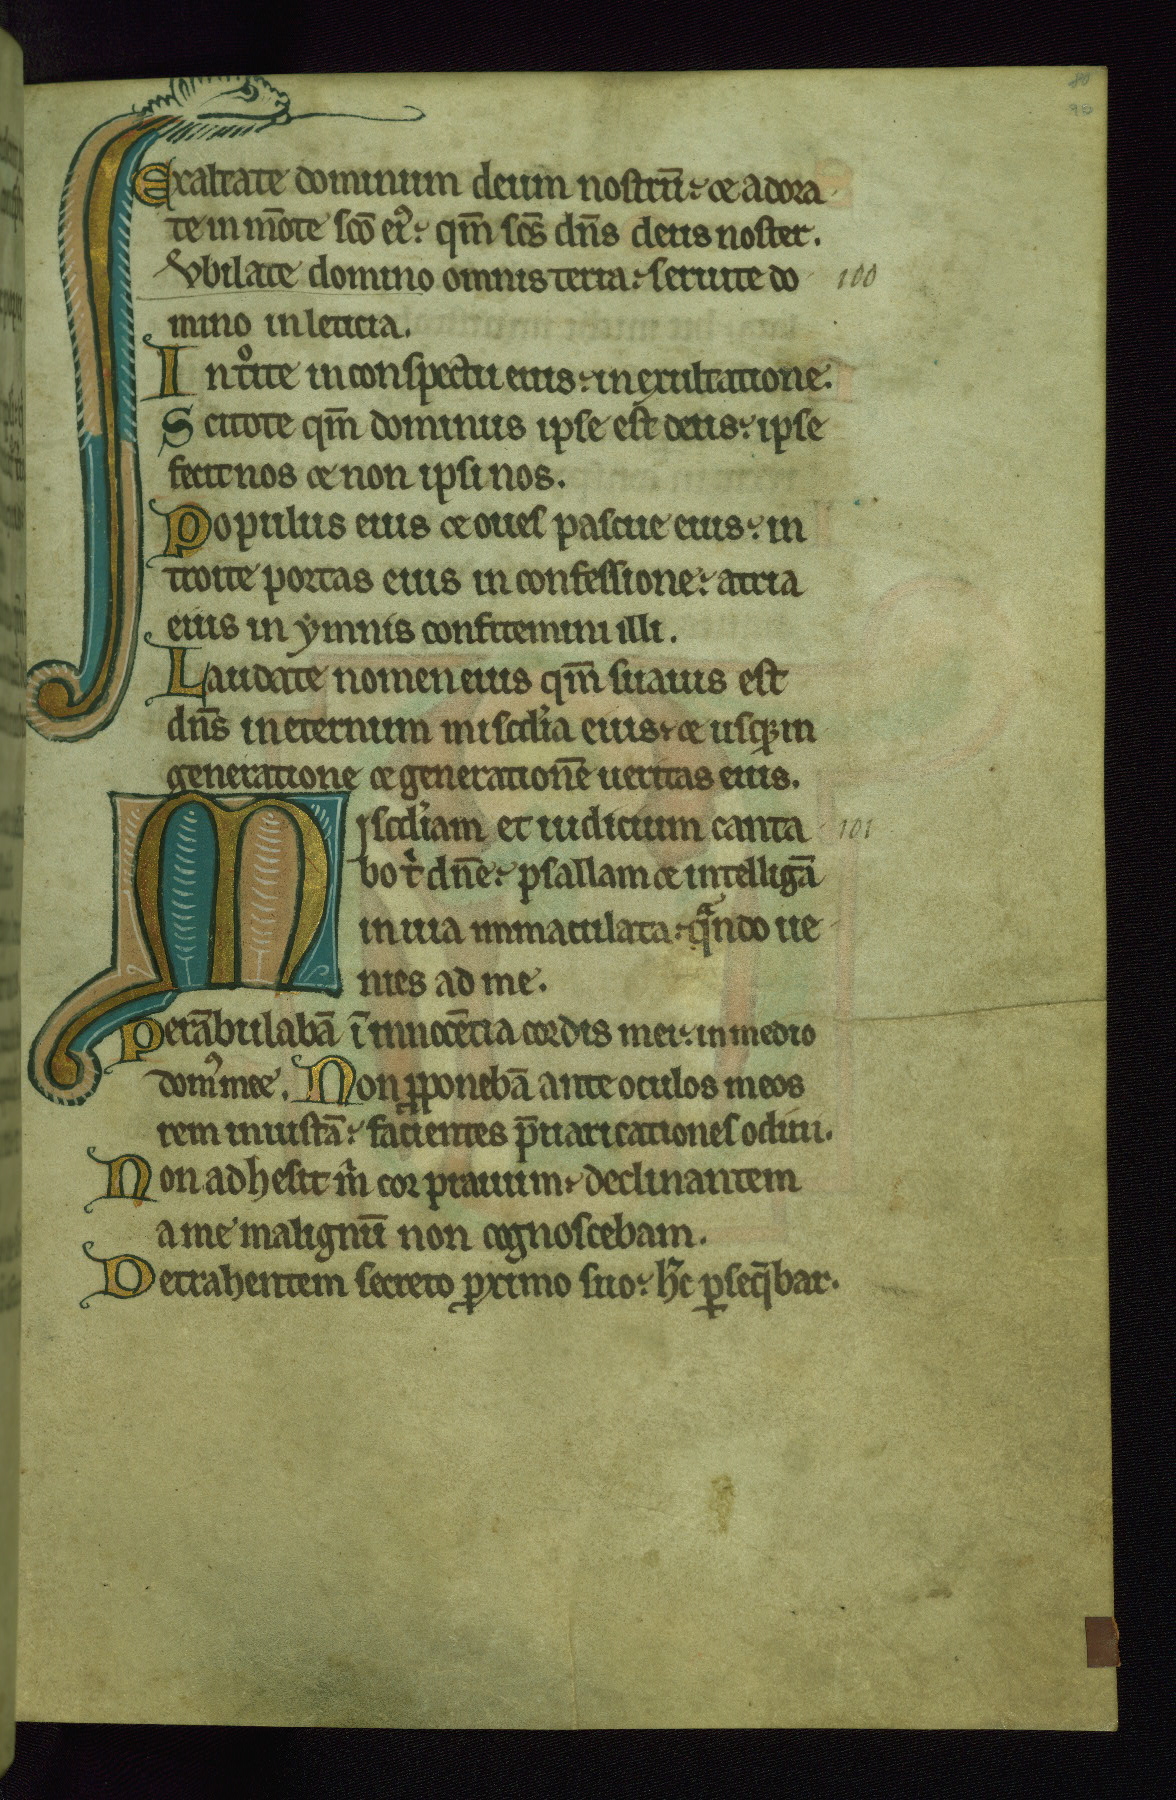 80
90
Exaltate dominum deum nostrū: ⁊ adora
te in mōte scō eiꝰ: qm̄ scs̄ dn̄s deus noster.
Jvbilate domino omnis terra: seruite do 100
mino in leticia.
Introite in conspectu eius: in exultatione.
Scitote qm̄ dominus ipse est deus: ipse
fecit nos ⁊ non ipsi nos.
Populus eius ⁊ oues pascue eius: in
troite portas eius in confessione: atria
eius in ymnis confitemini illi.
Laudate nomen eius qm̄ suauis est
dn̄s in eternum miscdia eius: ⁊ usqꝫ in
generatione ⁊ generationē ueritas eius.
Miscdiam et iudicium canta 101
bo t' dn̄e: psallam ⁊ intelligā
in uia immaculata: qᵃndo ue
nies ad me.
Perābulabā ī innocētia cordis mei: in medio
domꝰ mee. Non ꝓponebā ante oculos meos
rem iniustā: facientes p̄uaricationes odiui.
Non adhesit m̄ cor prauum: declinantem
a me malignū non cognoscebam.
Detrahentem secreto ꝓximo suo: hc̄ ꝑseq̄bar.